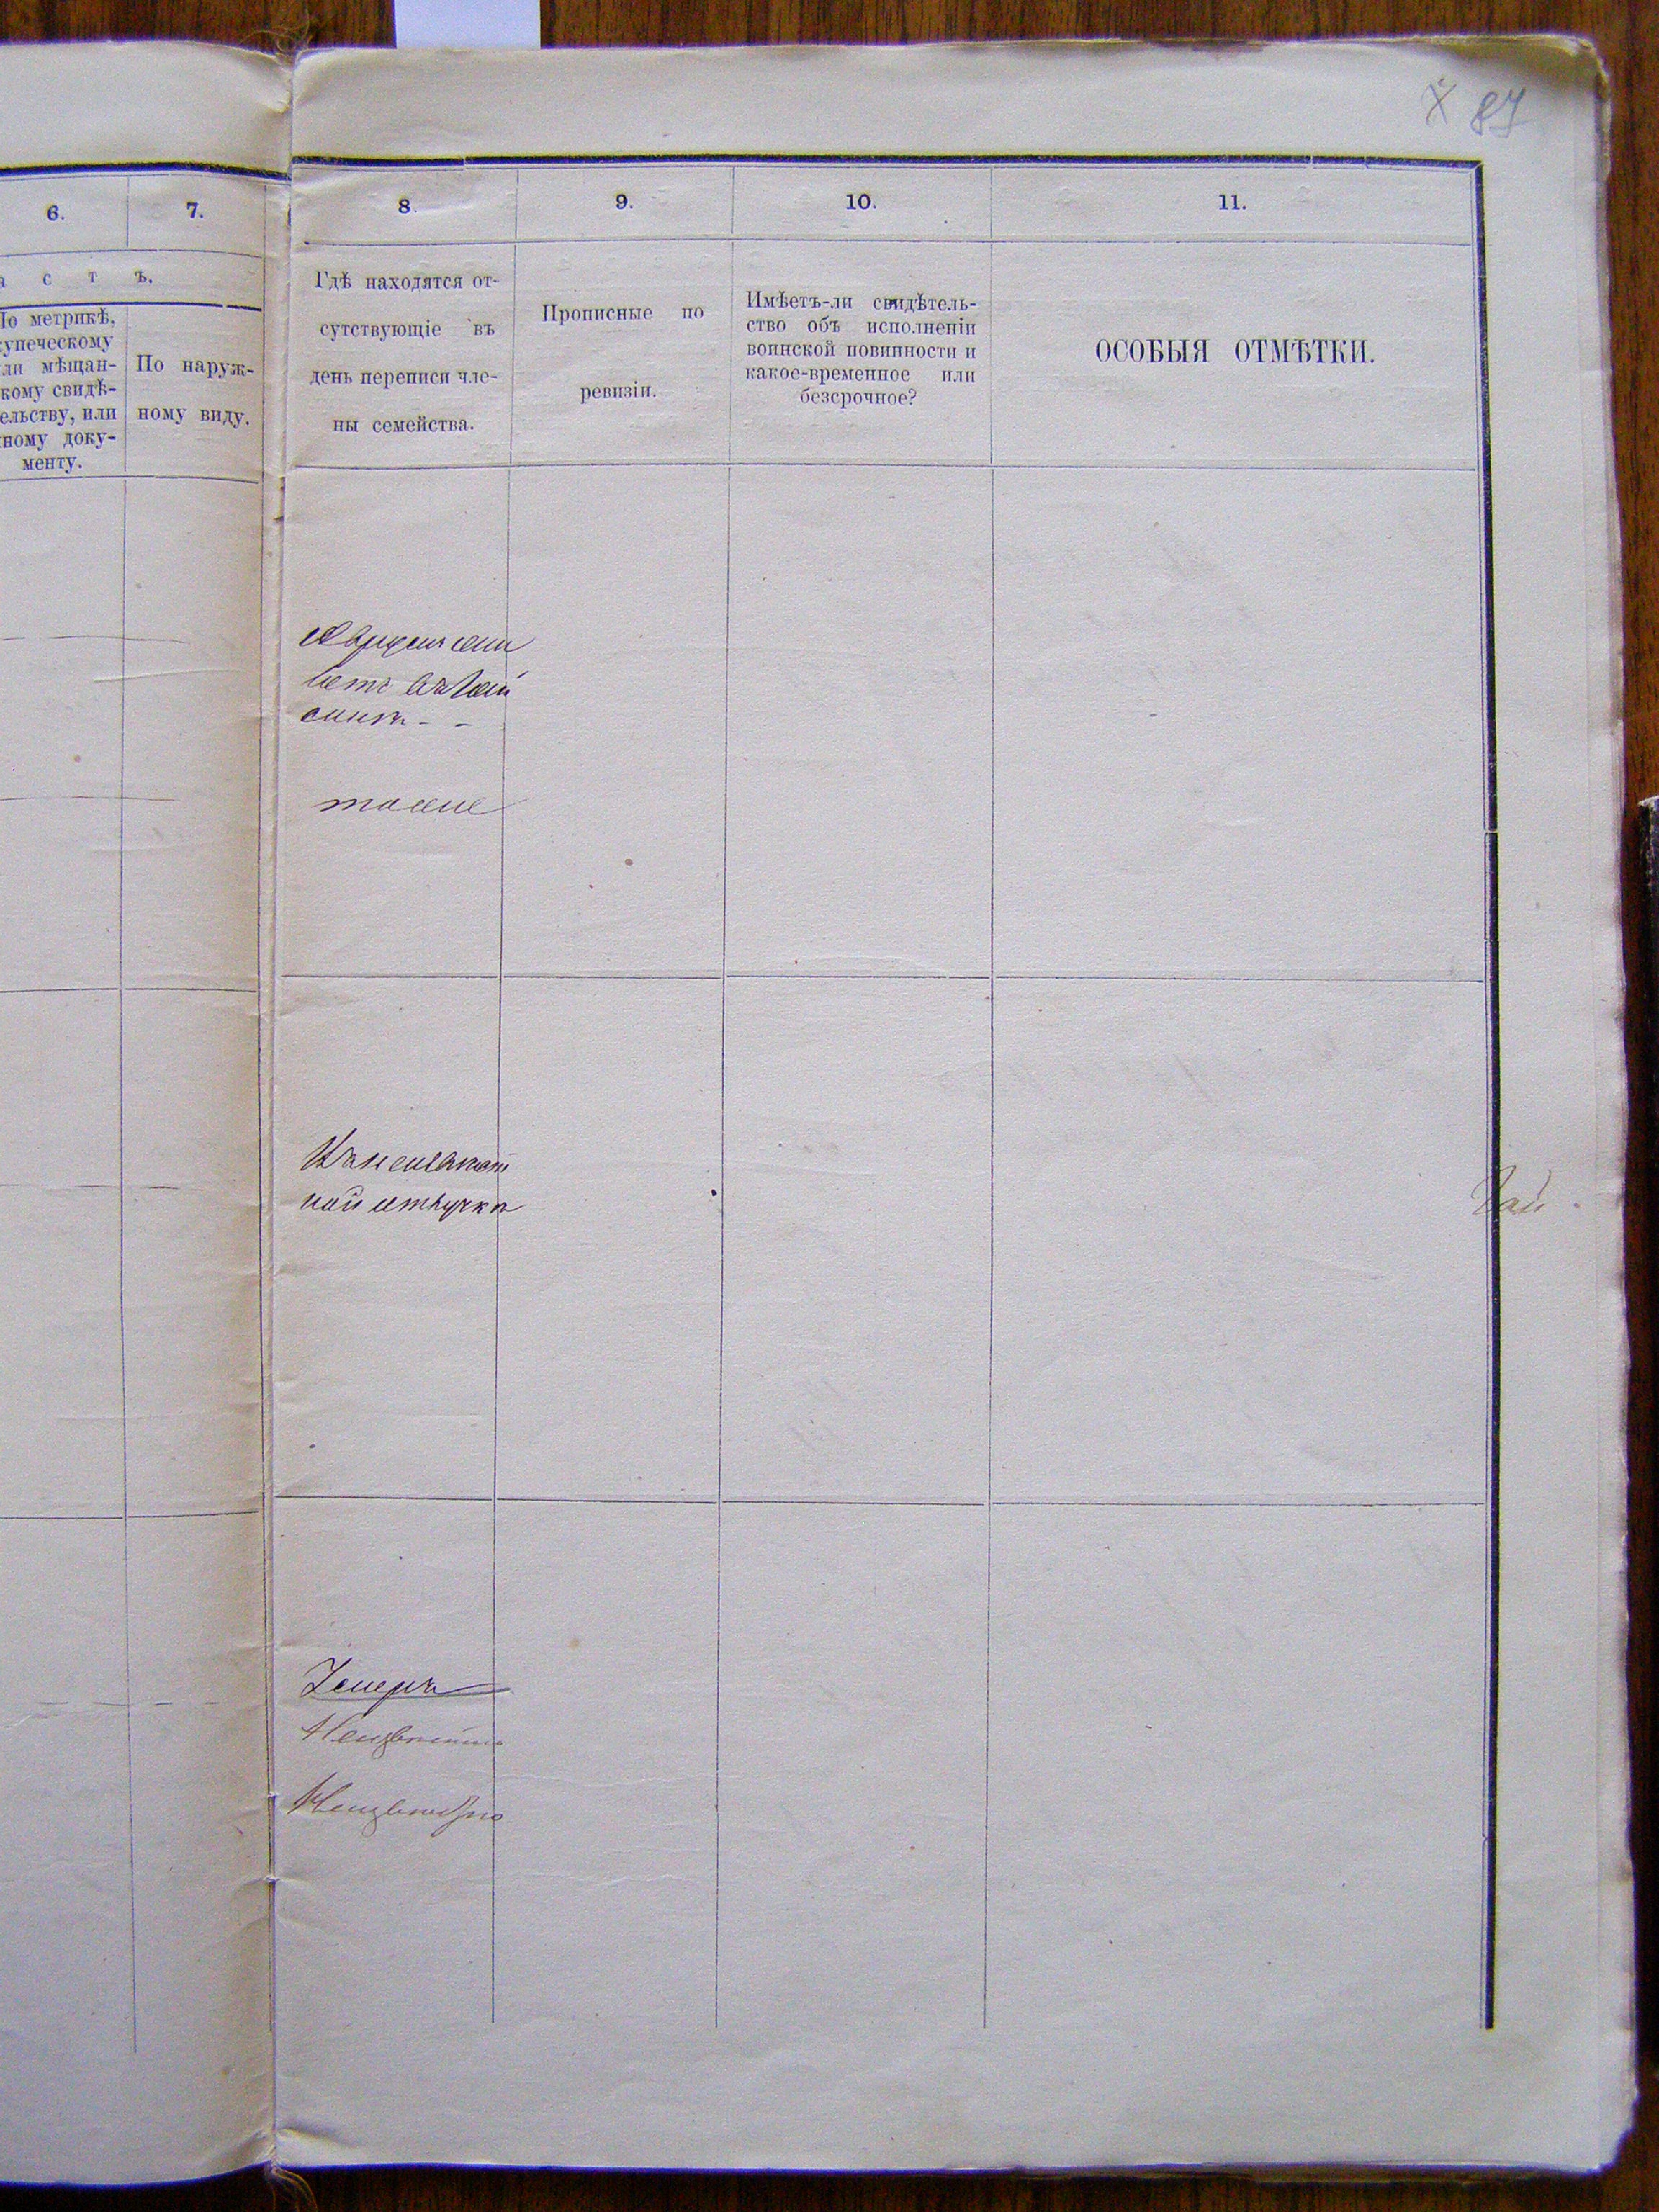 87
6.
7.
8.
9.
10.
11.
а с т ъ.
По метрикѣ,
купеческому
или мѣщан-
скому свидѣ-
тельству, или
иному доку-
менту.
По наруж-
ному виду.
Гдѣ находятся от-
сутствующіе въ
день переписи чле-
ны семейства.
Прописные по
ревизіи.
Имѣетъ-ли свидѣтель-
ство объ исполненіи
воинской повинности и
какое-временное или
безсрочное?
ОСОБЫЯ ОТМѢТКИ.
тоже
отлучкѣ
Неизвѣстно
Неизвѣстно